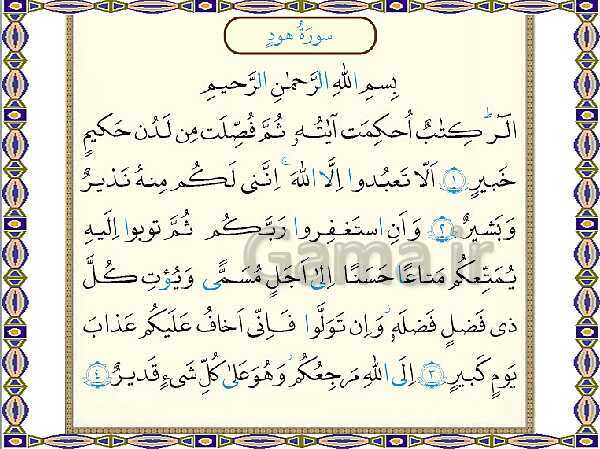 سورَةُ هودٍ
بِسمِ اللهِ الرَّحمٰنِ الرَّحیمِ
الٓرٰ ۚ کِتٰبٌ اُحکِمَت آیٰتُهٗ ثُمَّ فُصِّلَت مِن لَدُن حَکیمٍ
خَبیرٍ ﴿۱﴾ اَلّا تَعبُدوا اِلَّا اللهَ ۚ اِنَّنی لَکُم مِنهُ نَذیرٌ
وَ بَشیرٌ ﴿۲﴾ وَ اَنِ استَغفِروا رَبَّکُم ثُمَّ توبوا اِلَیهِ
یُمَتِّعکُم مَتاعًا حَسَنًا اِلیٰ اَجَلٍ مُسَمًّی وَ یُؤتِ کُلَّ
ذی فَضلٍ فَضلَهٗ ۖ وَ اِن تَوَلَّوا فَاِنّی اَخافُ عَلَیکُم عَذابَ
یَومٍ کَبیرٍ ﴿۳﴾ اِلَی اللهِ مَرجِعُکُم ۖ وَ هُوَ عَلیٰ کُلِّ شَیءٍ قَدیرٌ ﴿۴﴾
Gama.ir